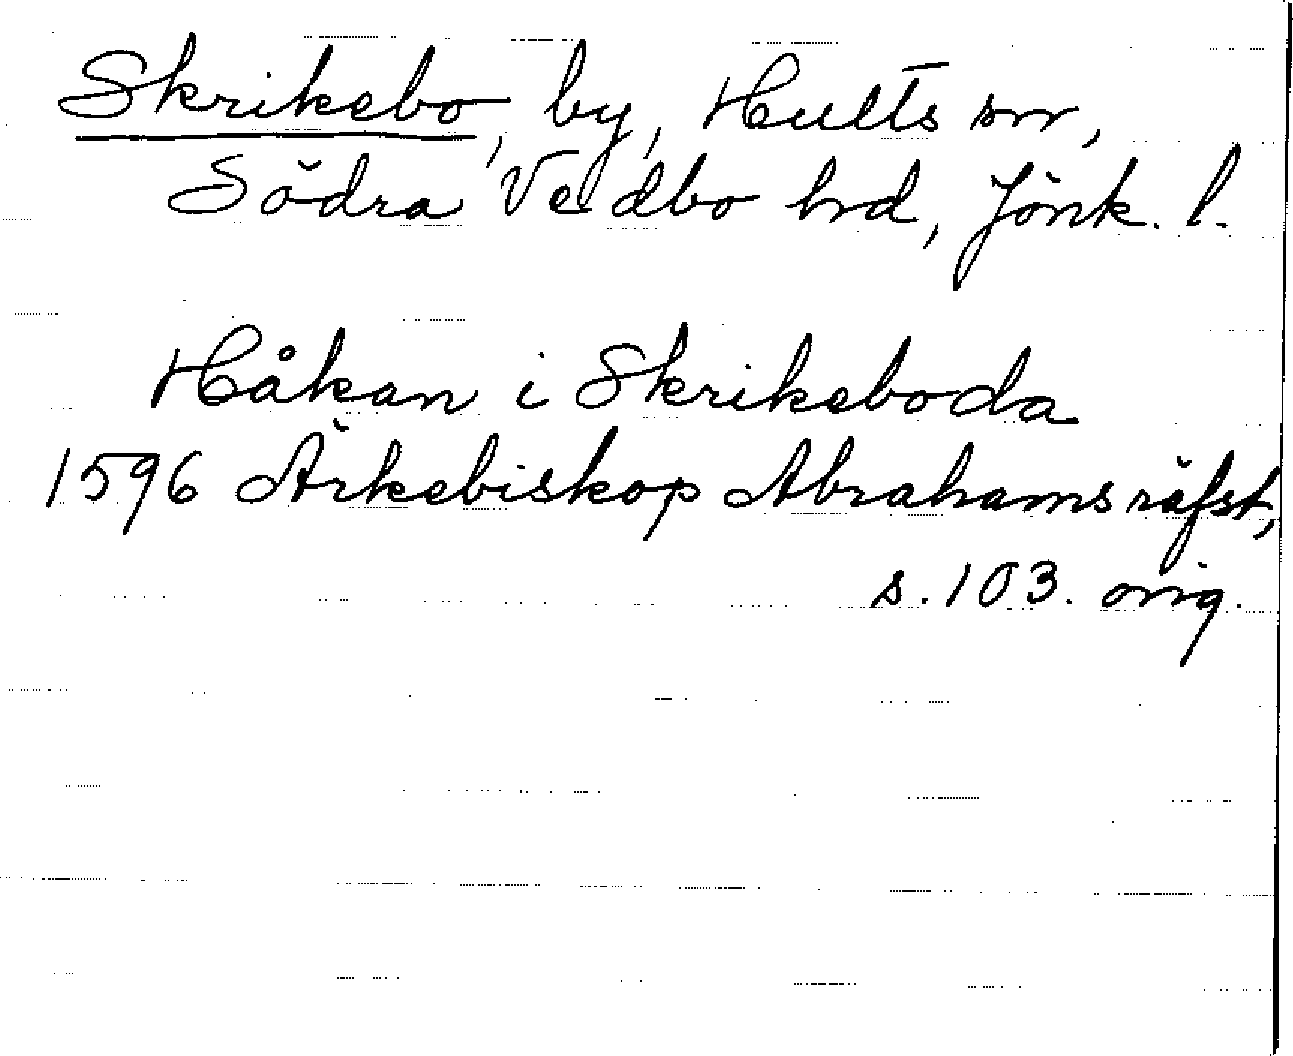 Skrikebo, by, Hults sn,
Södra Vedbo hrd, Jönk. l.
Håkan i Skrikeboda
1596 Ärkebiskop Abrahams räfst,
s. 103. orig.